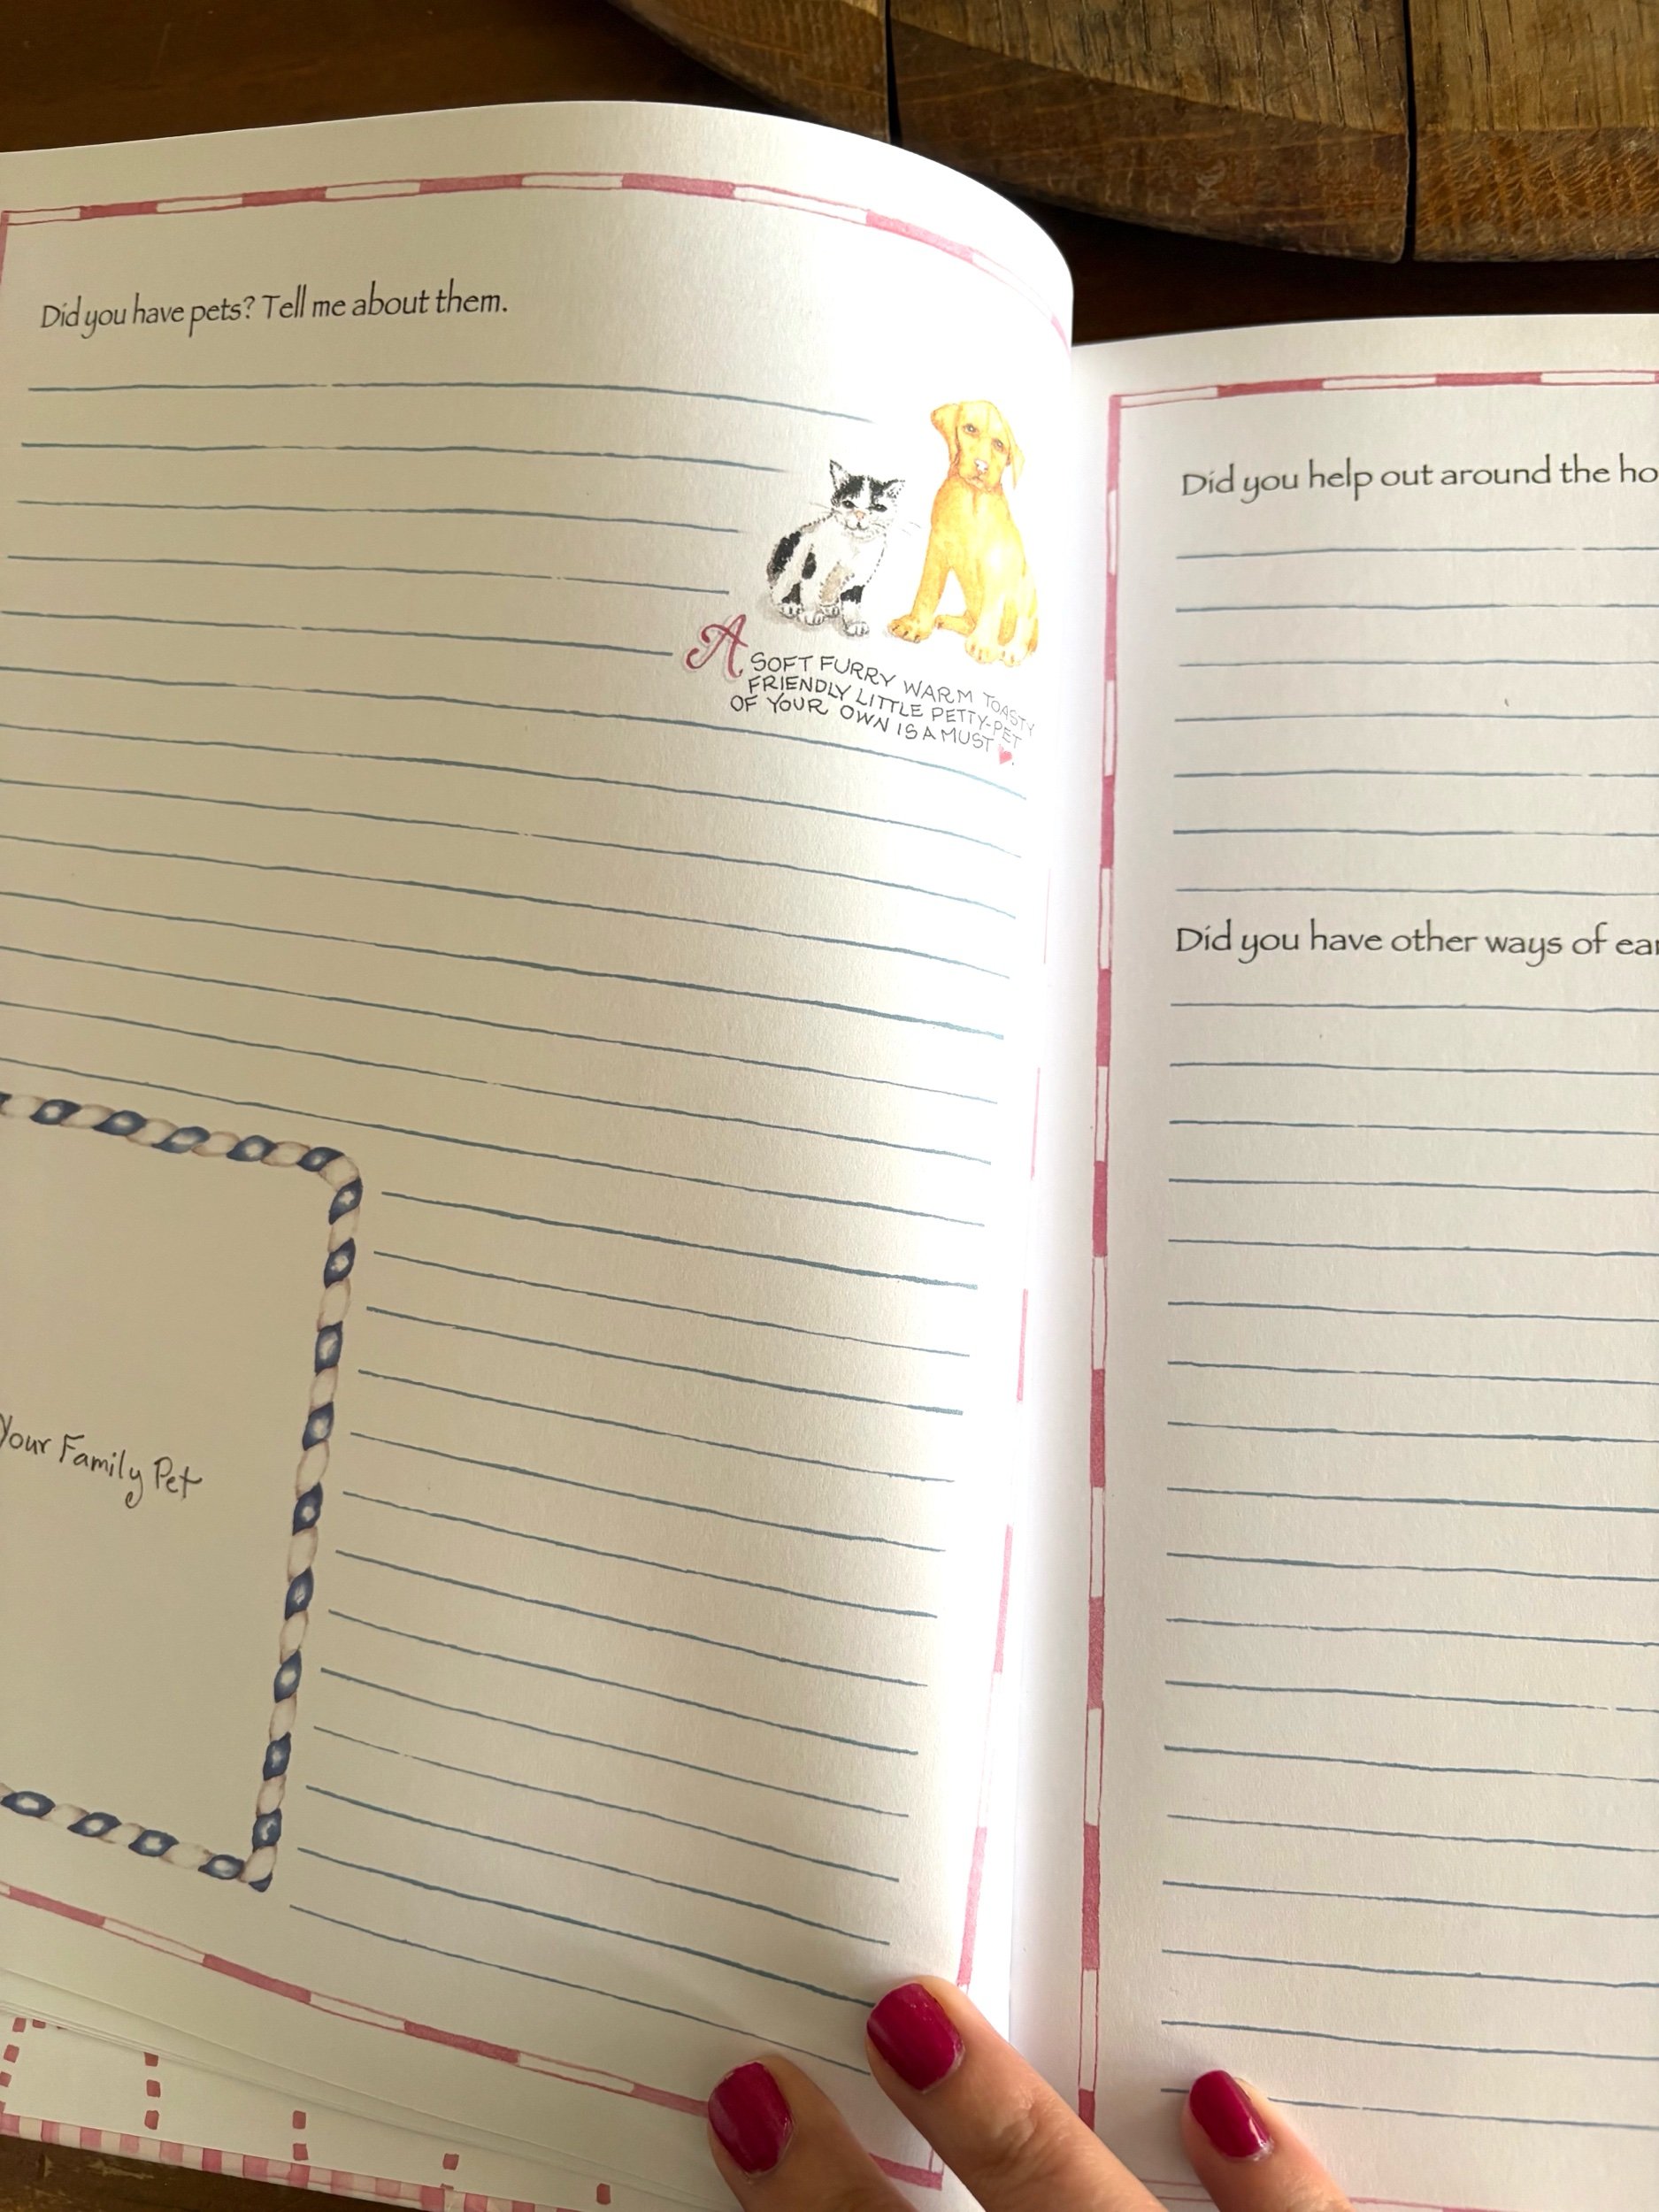 Did you have pets? Tell me about them.
A SOFT FURRY WARM TOASTY
FRIENDLY LITTLE PETTY-PET
OF YOUR OWN IS A MUST
Your Family Pet
Did you help out around the ho
Did you have other ways of ear